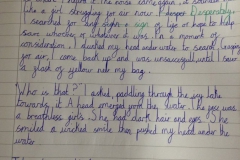 The noise came again. It sounded
like a girl struggling for air now. I deeper Desperately,
I searched for any sign of life or hope to help
save whoever or whatever it was. In a moment of
consideration, I ducked my head under water to search. Gasping
for air, I came back up and was unsuccessful until I saw
a flash of yellow near my bag.
Who is that?" I asked, paddling through the icy lake
towards it. A head emerged from the water. The face was
a breathless girls. She had dark hair and eyes. She
smiled a wicked smile then pushed my head under the
water